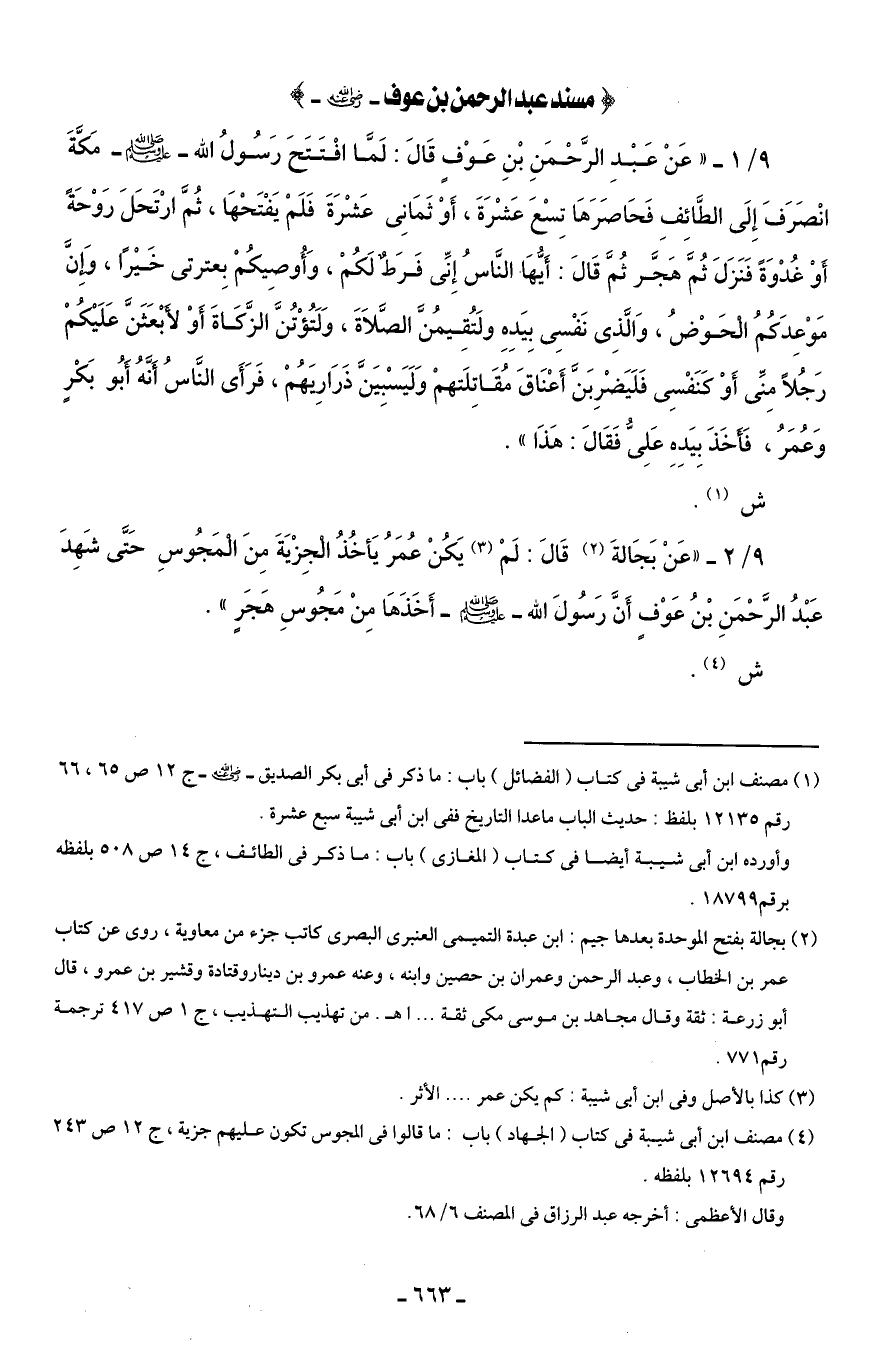 ﴿ مسند عبد الرحمن بن عوف ـ رضي الله عنه ـ ﴾
٩/ ١ ـ « عَنْ عَبْدِ الرَّحْمَنِ بْنِ عَوْفٍ قَالَ : لَمَّا افْتَتَحَ رَسُولُ الله ـ ﷺ ـ مَكَّةَ
انْصَرَفَ إِلَى الطَّائِفِ فَحَاصَرَهَا تِسْعَ عَشْرَةَ ، أَوْ ثَمَانِى عَشْرَةَ فَلَمْ يَفْتَحْهَا ، ثُمَّ ارْتَحَلَ رَوْحَةً
أَوْ غُدْوَةً فَنَزَلَ ثُمَّ هَجَّر ثُمَّ قَالَ : أَيُّهَا النَّاسُ إِنِّى فَرَطٌ لَكُمْ ، وَأُوصِيكُمْ بِعترتى خَيْرًا ، وَإِنَّ
مَوْعِدَكُمُ الْحَوْضُ ، وَالَّذِى نَفْسِى بِيَدِهِ ولَتُقِيمُنَّ الصَّلاَةَ ، وَلَتُؤْتُنَّ الزَّكَاةَ أَوْ لأَبْعَثَنَّ عَلَيْكُمْ
رَجُلاً مِنِّى أَوْ كَنَفْسِى فَلَيَضْرِبَنَّ أَعْنَاقَ مُقَاتِلَتِهِمْ وَلَيَسْبِيَنَّ ذَرَارِيَهُمْ ، فَرَأَى النَّاسُ أَنَّهُ أَبُو بَكْرٍ
وَعُمَرُ ، فَأَخَذَ بِيَدِهِ عَلِىٌّ فَقَالَ : هَذَا » .
ش (١) .
٩/ ٢ ـ «عَنْ بَجَالةَ (٢) قَالَ : لَمْ (٣) يَكُنْ عُمَرُ يَأخُذُ الْجِزْيَةَ مِنَ الْمَجُوسِ حَتَّى شَهِدَ
عَبْدُ الرَّحْمَنِ بْنُ عَوْفٍ أَنَّ رَسُولَ الله ـ ﷺ ـ أَخَذَهَا مِنْ مَجُوسِ هَجَرٍ » .
ش (٤) .
(١) مصنف ابن أبى شيبة فى كتاب ( الفضائل ) باب : ما ذكر فى أبى بكر الصديق ـ رضي الله عنه ـ ج ١٢ ص ٦٥ ، ٦٦
رقم ١٢١٣٥ بلفظ : حديث الباب ماعدا التاريخ ففى ابن أبى شيبة سبع عشرة .
وأورده ابن أبى شيبة أيضا فى كتاب ( المغازى ) باب : ما ذكر فى الطائف ، ج ١٤ ص ٥٠٨ بلفظه
برقم١٨٧٩٩ .
(٢) بجالة بفتح الموحدة بعدها جيم : ابن عبدة التميمى العنبرى البصرى كاتب جزء من معاوية ، روى عن كتاب
عمر بن الخطاب ، وعبد الرحمن وعمران بن حصين وابنه ، وعنه عمرو بن ديناروقتادة وقشير بن عمرو ، قال
أبو زرعة : ثقة وقال مجاهد بن موسى مكى ثقة ... ا هـ . من تهذيب التهذيب ، ج ١ ص ٤١٧ ترجمة
رقم٧٧١ .
(٣) كذا بالأصل وفى ابن أبى شيبة : كم يكن عمر .... الأثر .
(٤) مصنف ابن أبى شيبة فى كتاب ( الجهاد ) باب : ما قالوا فى المجوس تكون عليهم جزية ، ج ١٢ ص ٢٤٣
رقم ١٢٦٩٤ بلفظه .
وقال الأعظمى : أخرجه عبد الرزاق فى المصنف ٦/ ٦٨.
ـ ٦٦٣ ـ